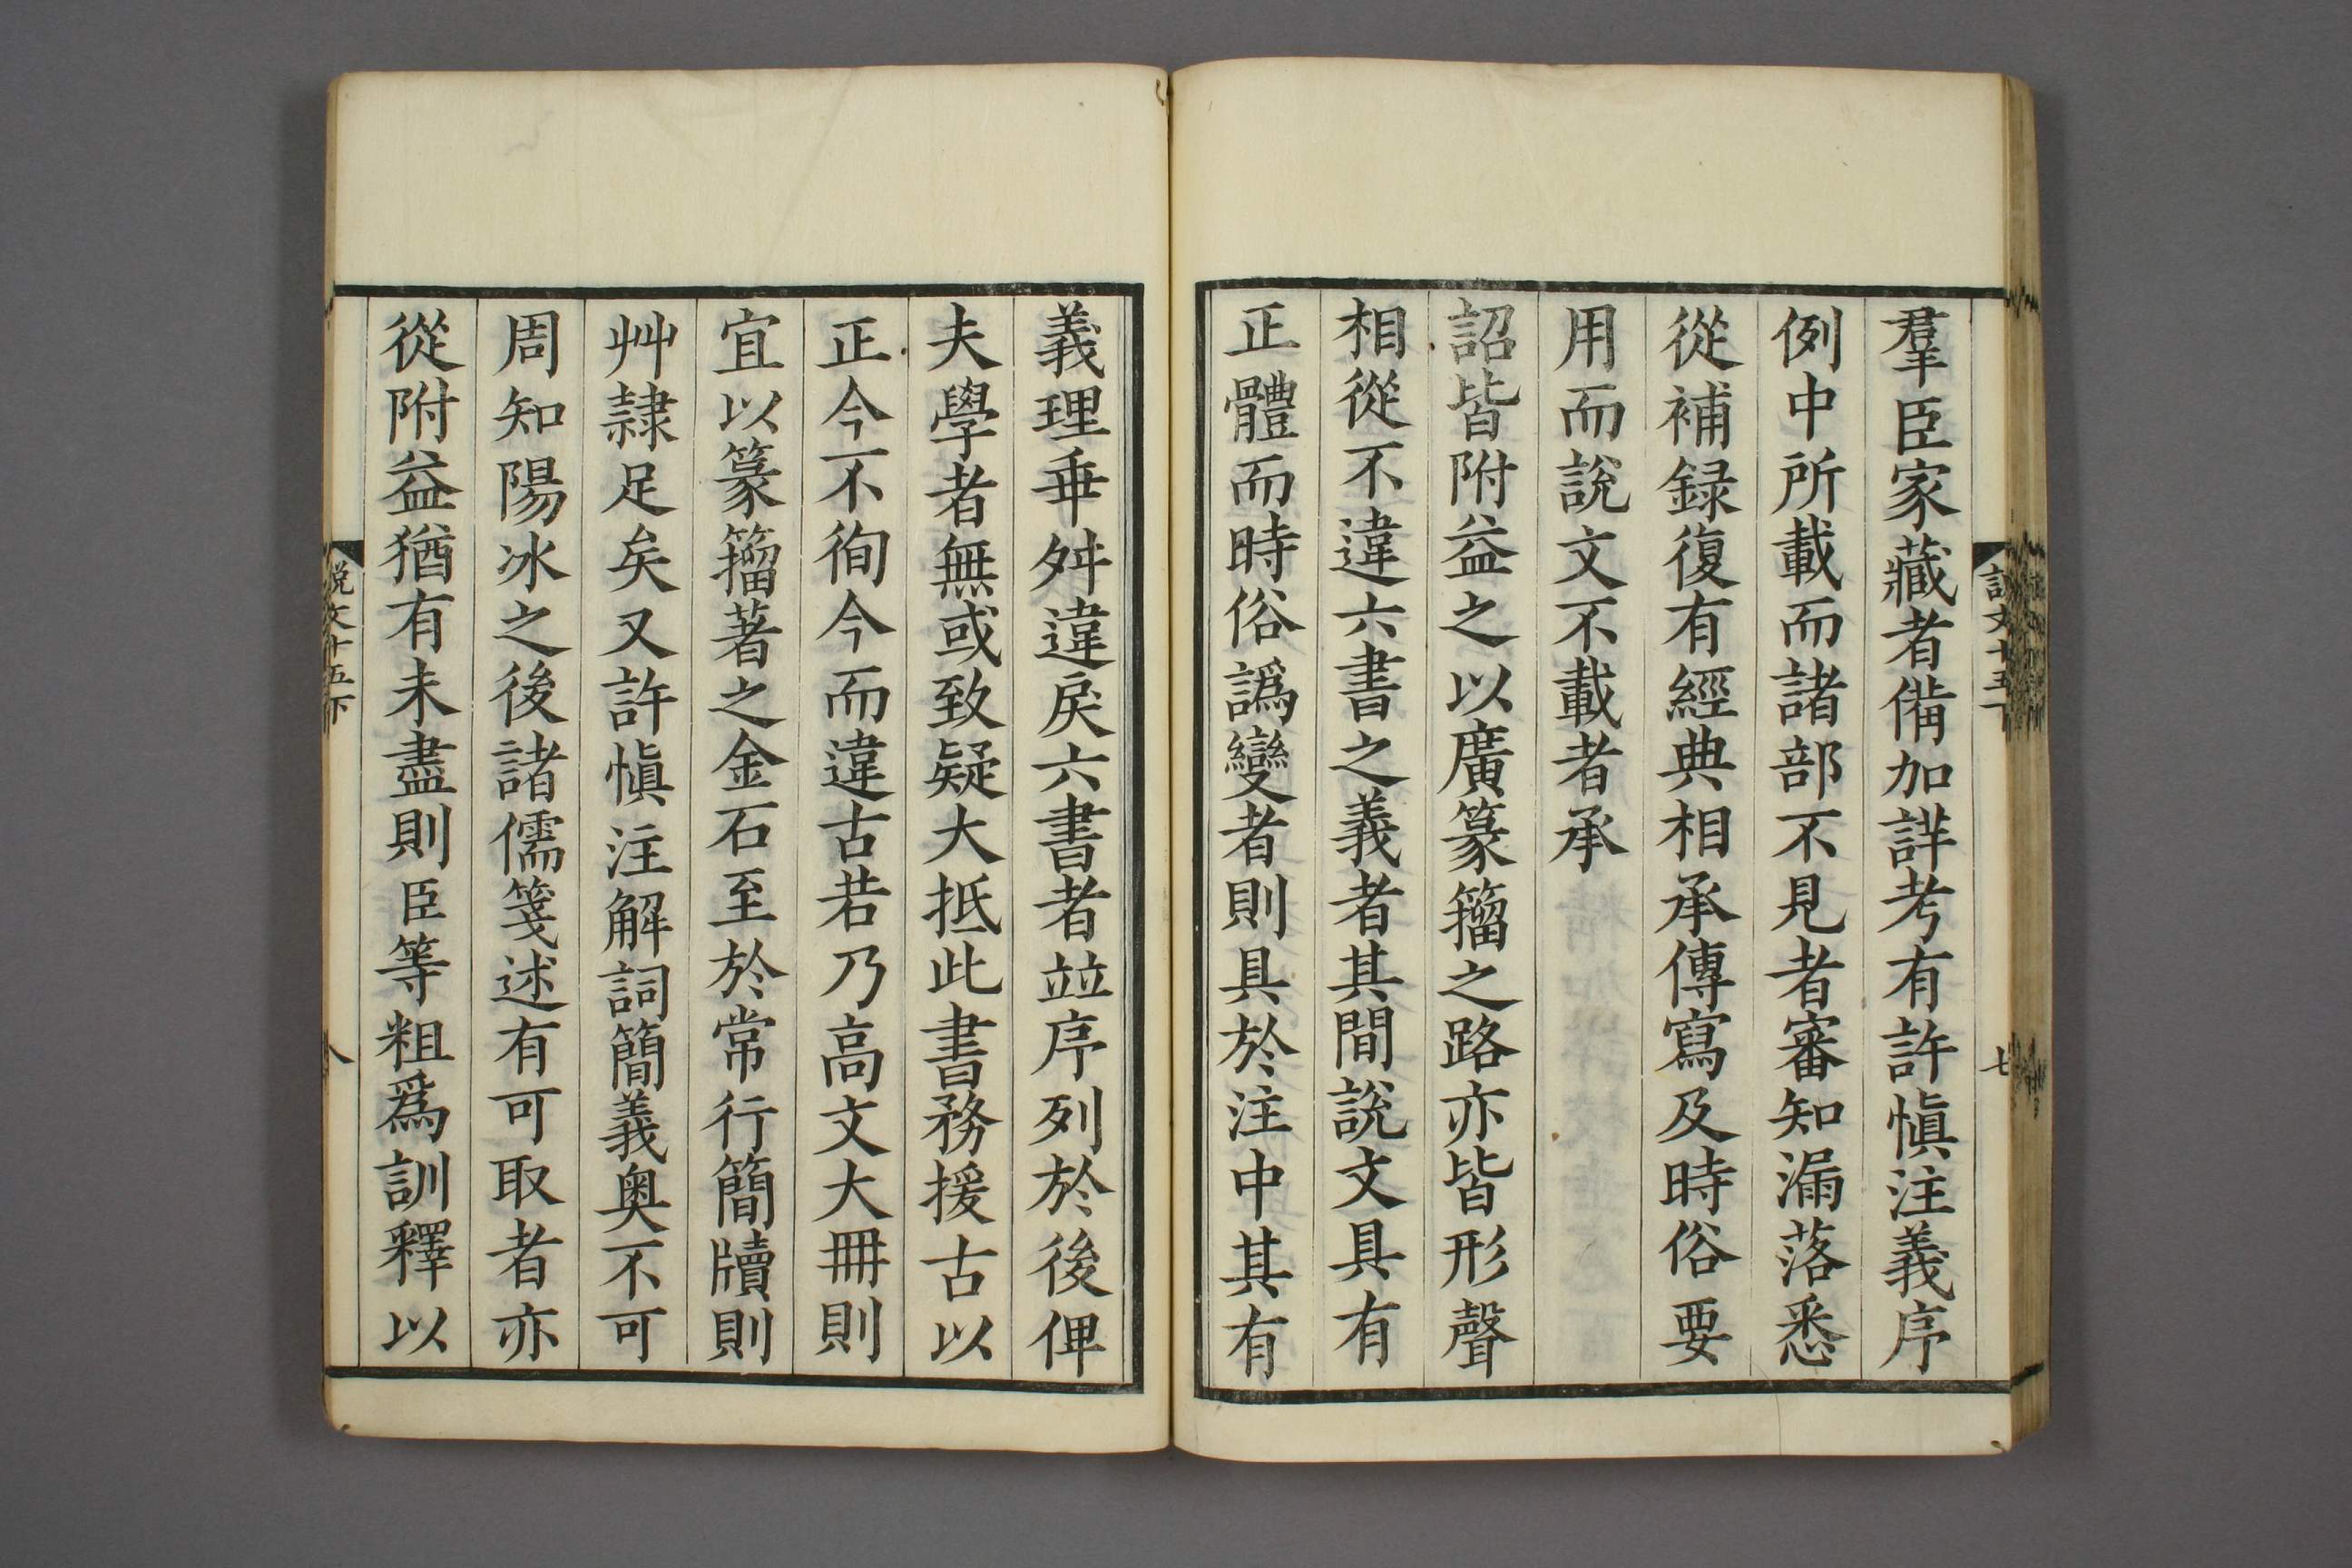 說文十五下
七
羣臣家藏者備加詳考有許愼注義序
例中所載而諸部不見者審知漏落悉
從補録復有經典相承傳寫及時俗要
用而說文不載者承
詔皆附益之以廣篆籀之路亦皆形聲
相從不違六書之義者其間說文具有
正體而時俗譌變者則具於注中其有
義理乖舛違戾六書者竝序列於後俾
夫學者無或致疑大抵此書務援古以
正今不徇今而違古若乃高文大冊則
宜以篆籀著之金石至於常行簡牘則
艸隷足矣又許愼注解詞簡義奥不可
周知陽冰之後諸儒箋述有可取者亦
從附益猶有未盡則臣等粗爲訓釋以
說文十五下
八